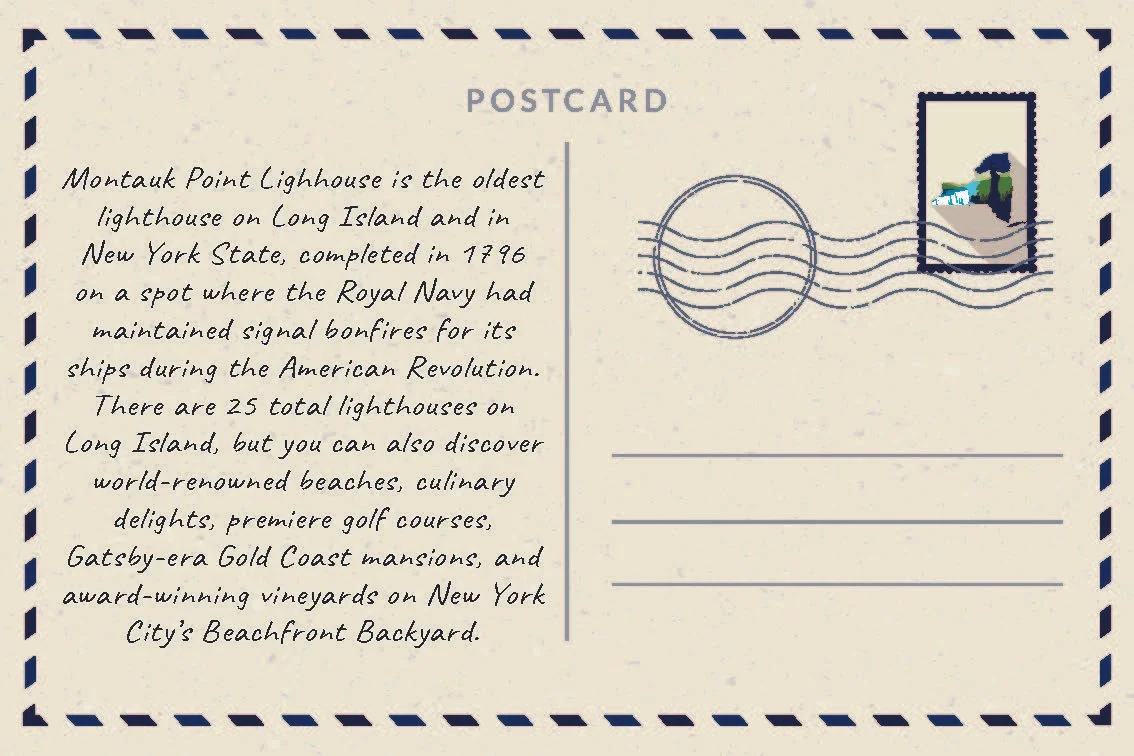 POSTCARD
Montauk Point Lighhouse is the oldest
lighthouse on Long Island and in
New York State, completed in 1796
on a spot where the Royal Navy had
maintained signal bonfires for its
ships during the American Revolution.
There are 25 total lighthouses on
Long Island, but you can also discover
world-renowned beaches, culinary
delights, premiere golf courses,
Gatsby-era Gold Coast mansions, and
award-winning vineyards on New York
City's Beachfront Backyard.